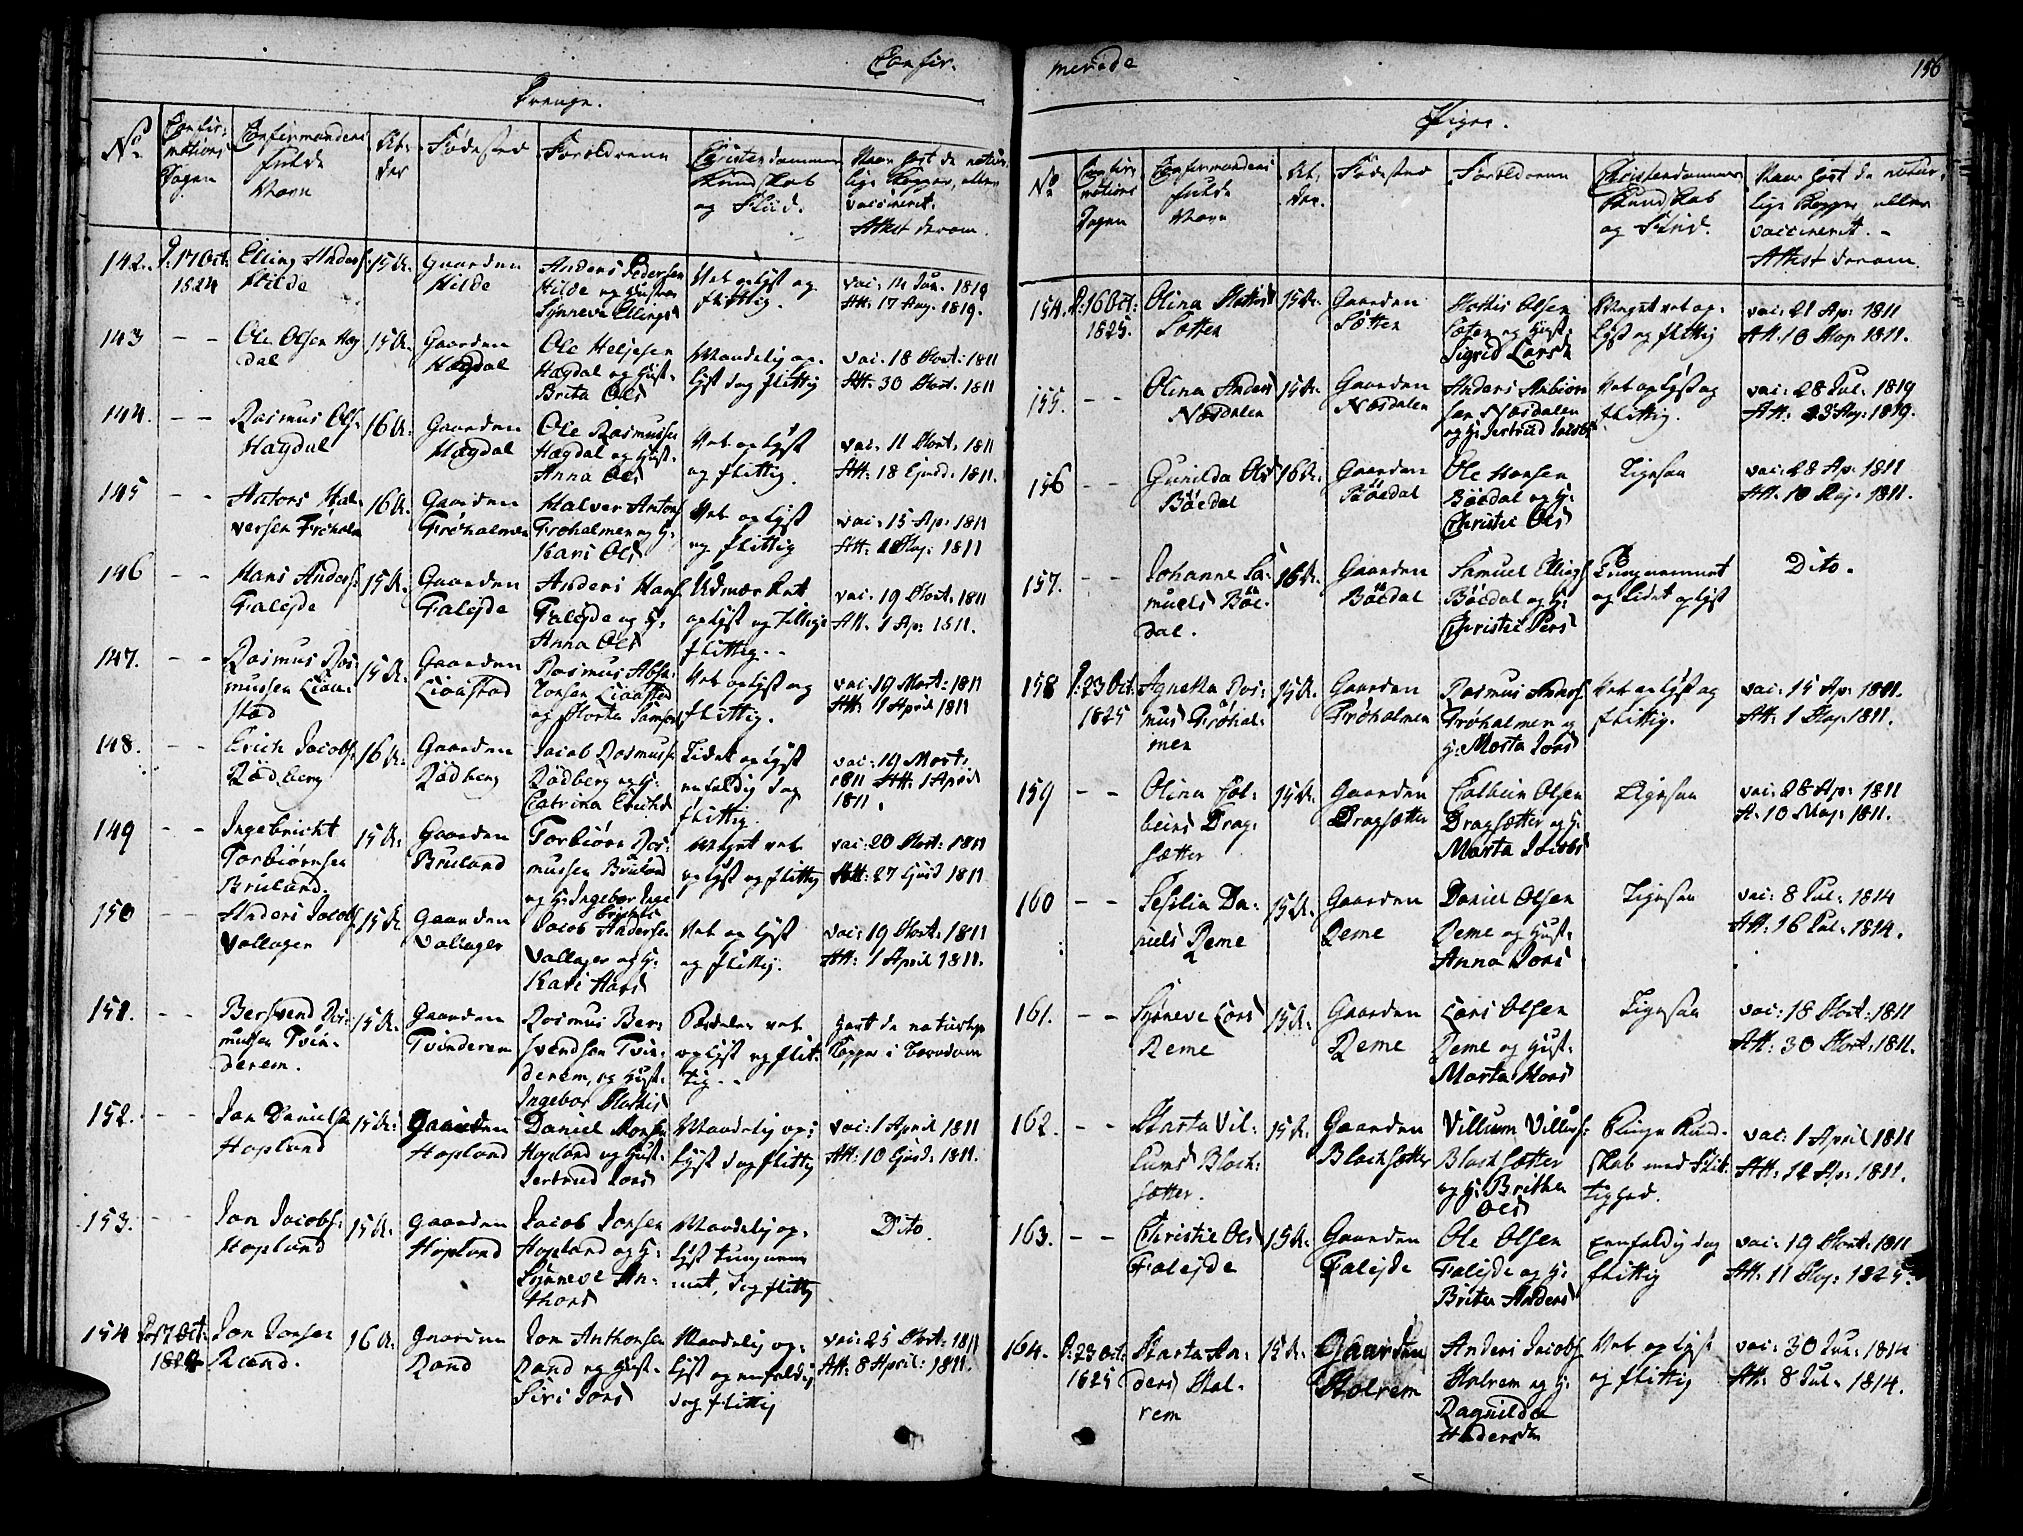 Confir-
Drenge.
No
Confir-
mations
Dagen
Confirmandens
fulde
Navn
Al-
der
Födested
Forældrene
Christendomme
Kundskab
og Fliid.
Naar havt de natur-
lige Kopper, eller
vaccineret.
Attest derom.
142. D. 17 Oct: 1824
Elling Anders:
Hilde
15 A.
Gaarden
Hilde
Anders Pedersen
Hilde og Hustru
Synneve Ellings
Vel oplyst og
flittig.
vac: 14 Jun. 1819
Att: 17 Aug. 1819.
143 - -
Ole Olsen Hæg
dal
15 A.
Gaarden
Hægdal
Ole Heljesen
Hægdal og Hust-
Brita Ols
Maadelig op-
lyst dog flittig
vac. 18 Mart: 1811
Att: 30 Mart. 1811
144. - -
Rasmus Ols-
Hægdal
16 A.
Gaarden
Hægdal
Ole Rasmusse
Hægdal og Hust-
Anna Ols
Vel oplyst
og flittig.
vac: 11 Mart: 1811
Att: 18 Ejusd: 1811.
145 - -
Antons Hal-
versen Fröholm
16 A.
Gaarden
Fröholmen
Halver Antons
Fröholmen og H:
Kari Ols
Vel oplyst
og flittig
vac: 15 Ap: 1811
Att: May: 1811
146 - -
Hans Anders:
Faleide
15 A.
Gaarden
Faleide
Anders Hans
Faleide og H:
Anna Ols
Udmærket
oplyst og tillige
flittig. -
vac: 19 Mart: 1811
Att. 1 Ap: 1811.
147. - -
Rasmus Ras-
mussen Lioa-
stad
15 A.
Gaarden
Lioastad
Rasmus Absa-
lonsen Lioastad
og Marta Samsons
Vel oplyst og
flittig.
vac: 19 Mart: 1811
Att. 1 April 1811
148. - -
Erich Jacobs:
Rödberg
16 A.
Gaarden
Rödberg
Jacob Rasmuss
Rödberg og H:
Catrina Erichs
Lidet oplyst
enfoldig dog
flittig.
vac: 19 Mart:
1811 Att: 1 April
1811.
149 - -
Ingebricht
Torbiörnsen
Bruland.
15 A.
Gaarden
Bruland
Torbiörn Ras-
mussen Bruland
og H: Ingebor Inge
brichts
Meget vel
oplyst og flittig
vac: 20 Mart: 1811
Att: 27 Ejusd 1811
150 - -
Anders Jacobs
Vallager
15 A.
Gaarden
Vallager
Jacob Anderse
Vallager og H:
Kari Hans
Vel oplyst
og flittig.
vac: 19 Mart: 1811
Att: 1 April 1811.
151. - -
Bersvend Ras-
mussen Tvin-
derem.
15 A.
Gaarden
Tvinderem
Rasmus Ber-
svendsen Tvin-
derem, og Hust-
Ingebor Mathis
vel
oplyst og flit-
tig. -
Havt de naturlige
Kopper i Barndom
152. - -
Jon Danielse
Hopland
15 A:
Gaarden
Hopland
Daniel Monse
Hopland og Hust-
Jertrud Jons
Maadelig op-
lyst dog flittig
vac: 1 April 1811
Att: 10 Ejusd: 1811.
153. - -
Jon Jacobs:
Hopland
15 A:
Gaarden
Hopland
Jacob Jonsen
Hopland og H:
Synneve An-
thons
Maadelig op-
lyst tungnem-
met, dog flittig
Dito.
154 17 Oct: 1824
Jon Jonsen
Rand.
16 A.
Gaarden
Rand
Jon Anthonsen
Rand og Hust-
Siri Jons
Maadelig op-
lyst og enfoldig
dog flittig
vac: 25 Mart: 1811
Att: 8 April: 1811.
merede
156
Piger.
No
Confir-
mations
Dagen
Confirmandens
fulde
Navn
Al-
der.
Födested
Forældrene
Christendommes
Kundskab
og Fliid.
Naar havt de natur-
lige Kopper eller
vaccineret. -
Attest derom.
154. D: 16 Oct: 1825.
Olina Mathis
Sætten
15 A.
Gaarden
Sætten
Mathis Olsen
Sæten og Hust:
Sigrid Lars
Meget vel op-
lyst og flittig
vac: 21 Ap: 1811
Att. 10 May 1811.
155. - -
Olina Anders
Næsdalen
15 A.
Gaarden
Næsdalen
Anders Anbiörn
sen Næsdalen
og H: Jertrud Jacobs
Vel oplyst og
flittig.
vac: 28 Jul: 1819
Att: 23 Aug: 1819.
156 - -
Gunilda Ols
Böedal
16 A.
Gaarden
Böedal
Ole Hansen
Böedal og H:
Christie Ols
Ligesaa
vac: 28 Ap: 1811
Att: 10 May: 1811.
157. - -
Johanne Sa-
muels Böe-
dal.
16 A.
Gaarden
Böedal
Samuel Ellings
Böedal og H:
Christie Pers
Tungnemmet
og lidet oplyst
Dito.
158 D: 23 Oct. 1825
Agnetha Ras-
mus Fröhol-
men
15 A.
Gaarden
Fröholmen
Rasmus Anders
Fröholmen og
H: Marta Jons
Vel oplyst og
flittig.
vac: 15 Ap: 1811.
Att: 1 May: 1811.
159 - -
Olina Col-
beins Drag-
sætter
15 A.
Gaarden
Dragsætter
Colbein Olsen
Dragsætter og H:
Marta Jacobs
Ligesaa
vac: 28 Ap: 1811
A. 10 May: 1811.
160 - -
Sesilia Da-
niels Reme
15 A.
Gaarden
Reme
Daniel Olsen
Reme og Hust:
Anna Jons
Ligesaa
vac: 8 Jul: 1814
Att: 16 Jul: 1814.
161. - -
Synneve Lars
Reme
15 A.
Gaarden
Reme
Lars Olsen
Reme og Hust:
Marta Hans
Ligesaa
vac: 18 Mart: 1811
Att: 30 Mart: 1811.
162. - -
Marta Vil-
lums Blach-
sætter.
15 A.
Gaarden
Blachsætter
Villum Villums:
Blachsætter
og H: Britha
Ols
Ringe Kund-
skab med Flit-
tighed.
vac: 1 April 1811
Att: 12 Ap: 1811.
163. - -
Christie Ols
Faleide
15 A.
Gaarden
Faleide
Ole Olsen
Faleide og H:
Brita Anders
Eenfoldig dog
flittig
vac: 19 Mart: 1811
Att: 11 May: 1825.
164. D: 23 Oct: 1825
Marta An-
ders Mal-
rem
15 A.
Gaarden
Malrem
Anders Jacobs
Malrem og H:
Ragnilda
Anders
Vel oplyst
og flittig
vac: 30 Jun: 1814
Att: 8 Jul: 1814.